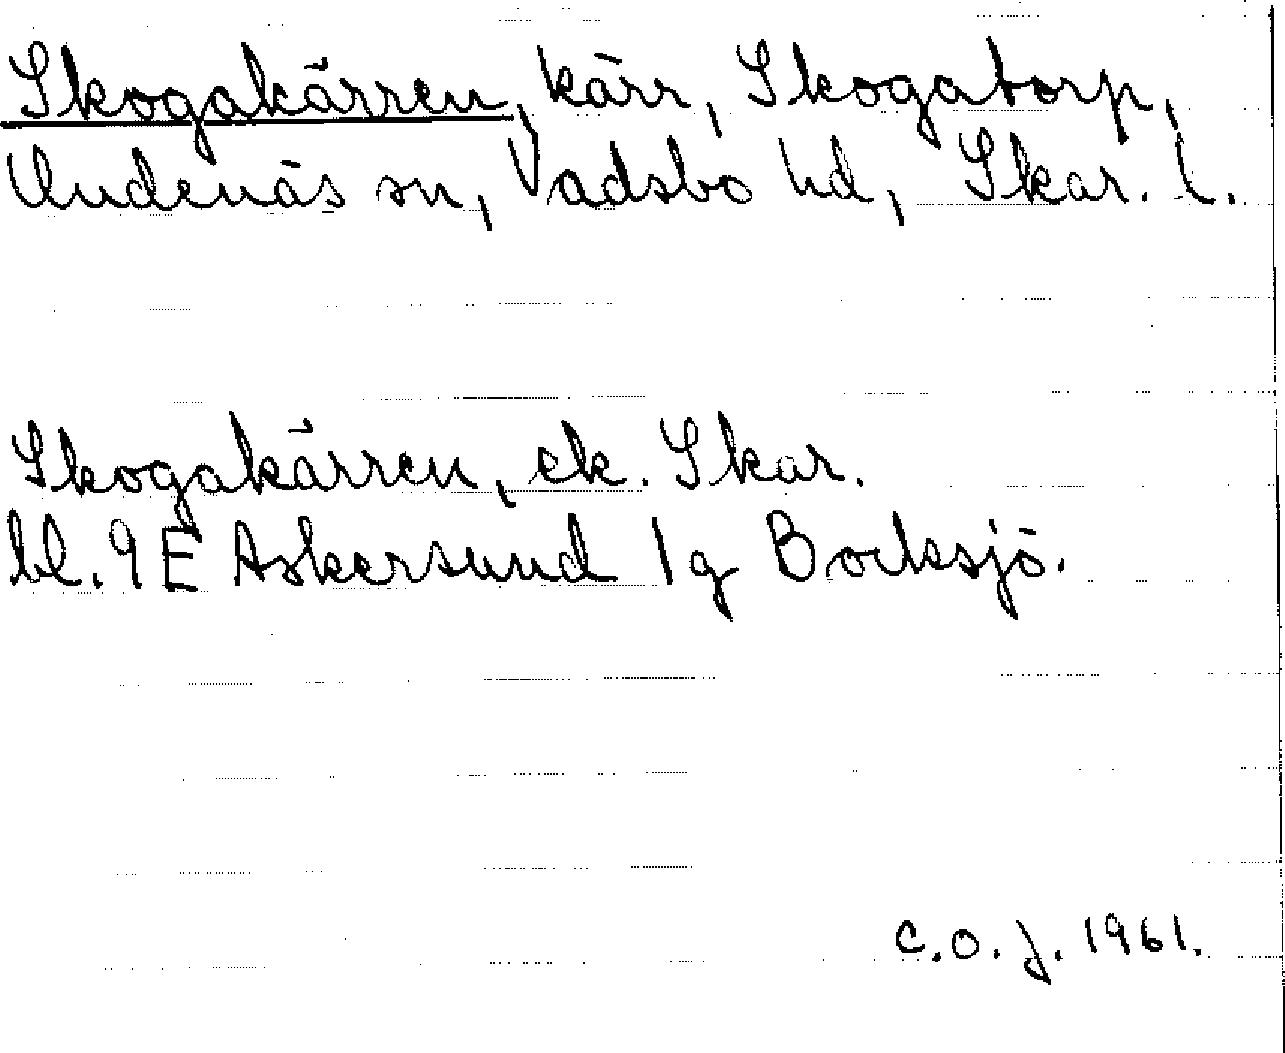 Skogakärren, kärr, Skogatorp,
Undenäs sn, Vadsbo hd, Skar. l.
Skogakärren, ek. Skar.
bl. 9E Askersund 1g Bocksjö.
C.O.J. 1961.